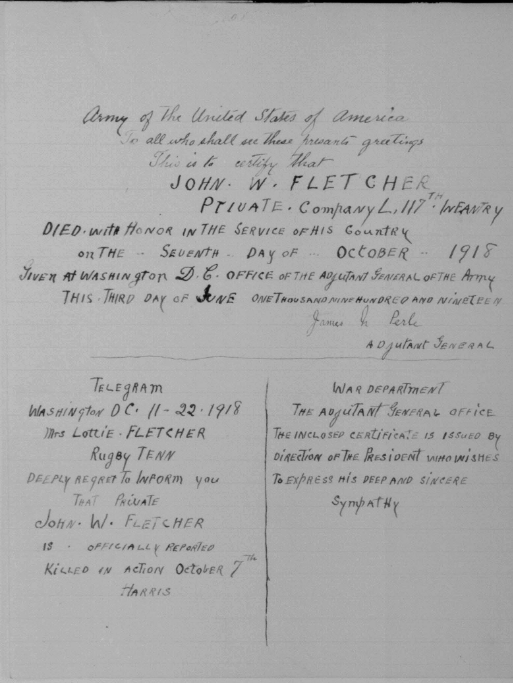 Army of the United States of America
To all who shall see these presants greetings
This is to certify that
JOHN. W. FLETCHER
PRIVATE. Company L, 117TH INFANTRY
DIED. with HONOR IN THE SERVICE OF HIS COUNTRY
ON THE .. SEVENTH .. DAY OF .. OCTOBER .. 1918
GIVEN AT WASHINGTON D.C. OFFICE OF THE ADJUTANT GENERAL OF THE ARMY
THIS. THIRD DAY OF JUNE ONE THOUSAND NINE HUNDRED AND NINETEEN
James
ADJUTANT GENERAL
TELEGRAM
WASHINGTON DC. 11-22-1918
Mrs LOTTIE. FLETCHER
RUGBY TENN
DEEPLY REGRET TO INFORM you
THAT PRIVATE
JOHN. W. FLETCHER
IS . OFFICIALLY REPORTED
KILLED IN ACTION OCTOBER 7th
HARRIS
WAR DEPARTMENT
THE ADJUTANT GENERAL OFFICE
THE INCLOSED CERTIFICATE IS ISSUED BY
DIRECTION OF THE PRESIDENT WHO WISHES
TO EXPRESS HIS DEEP AND SINCERE
SYMPATHY